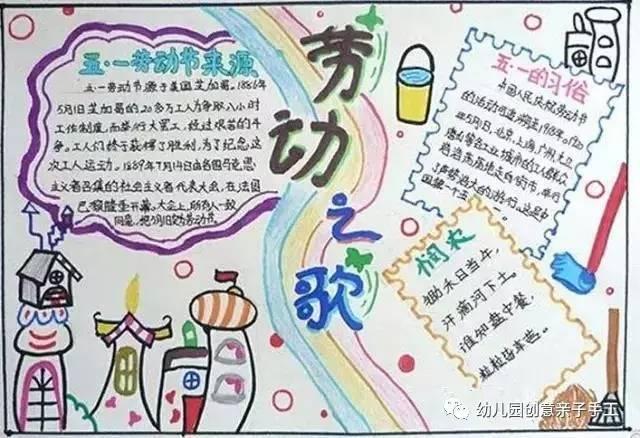 五·一劳动节来源
五·一劳动节源于美国芝加哥。1886年
5月1日芝加哥的20多万工人为争取八小时
工作制度,而举行大罢工,经过艰苦的斗
争。工人们终于获得了胜利,为了纪念这
次工人运动。1889年7月14日由各国马克思
主义者召集的社会主义者代表大会,在法国
巴黎隆重开幕。大会上,所有人一致
同意,把5月1日定为劳动节。
劳动之歌
五·一的习俗
中国人民庆祝劳动节
的活动可追溯至1918年。1920
年5月1日,北京,上海,广州,九江
唐山等各工业城市的工人群众
浩浩荡荡走向街市,举行
了声势浩大的游行。这是中
国第一个五一
悯农
锄禾日当午,
汗滴河下土。
谁知盘中餐,
粒粒皆辛苦。
幼儿园创意亲子手工